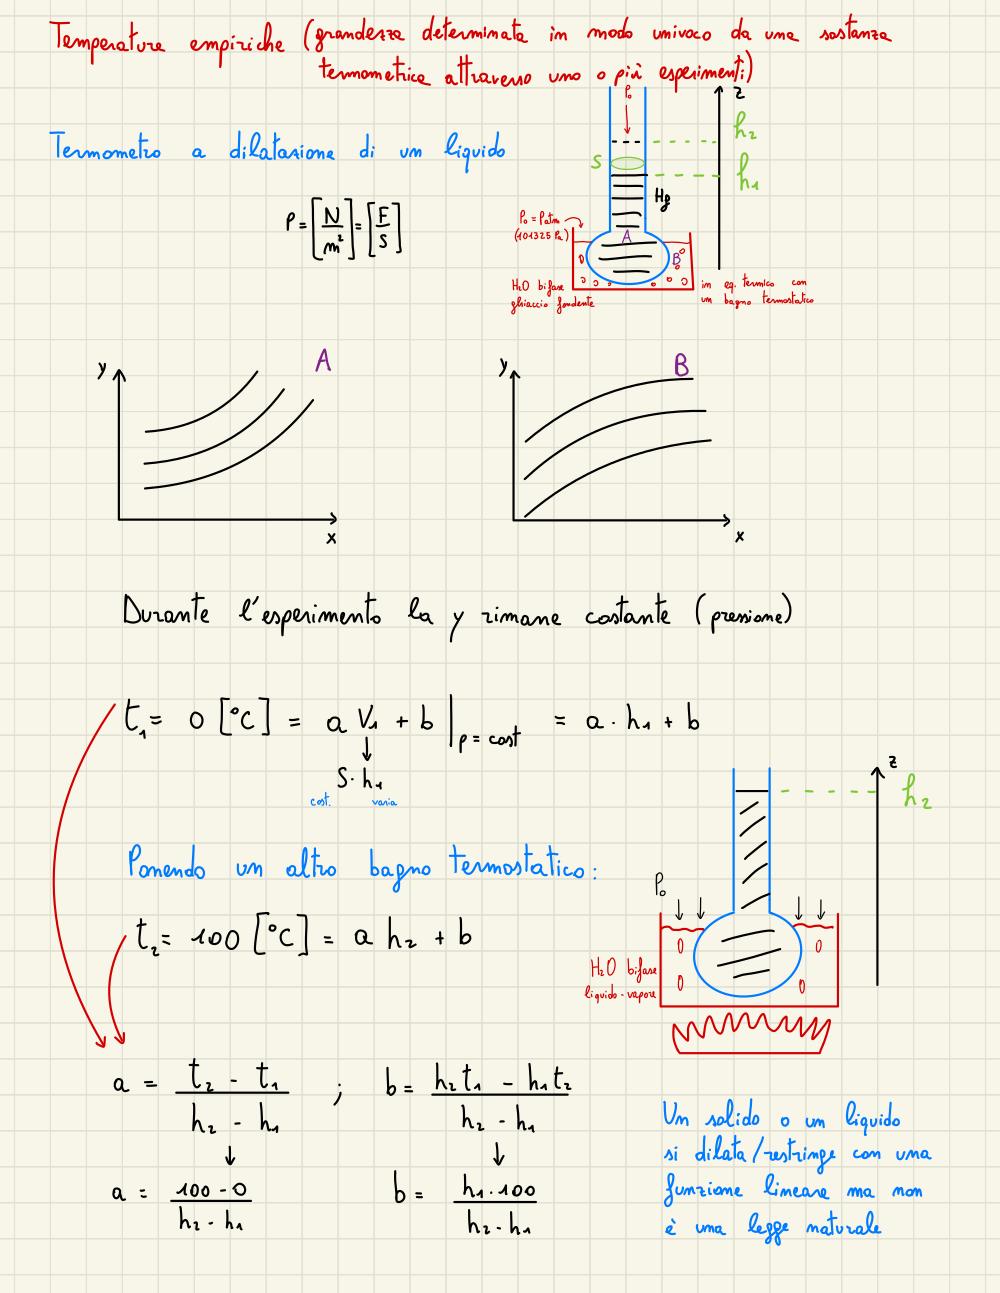 Temperature empiriche (grandezza determinata in modo univoco da una sostanza
termometrica attraverso uno o più esperimenti)
Termometro a dilatazione di un liquido
P = [N/m²] = [F/S]
P₀
z
h₂
S
h₁
Hg
P₀ = Patm
(101325 Pa)
A
B
H₂O bifase
ghiaccio fondente
in eq. termico con
un bagno termostatico
y
A
x
y
B
x
Durante l'esperimento la y rimane costante (pressione)
t₁ = 0 [°C] = a V₁ + b |p = cost = a · h₁ + b
↓
S · h₁
cost. varia
z
h₂
Ponendo un altro bagno termostatico:
P₀
t₂ = 100 [°C] = a h₂ + b
H₂O bifase
liquido-vapore
a = (t₂ - t₁)/(h₂ - h₁) ; b = (h₂t₁ - h₁t₂)/(h₂ - h₁)
↓ ↓
a = (100 - 0)/(h₂ - h₁) b = (h₁ · 100)/(h₂ - h₁)
Un solido o un liquido
si dilata/restringe con una
funzione lineare ma non
è una legge naturale